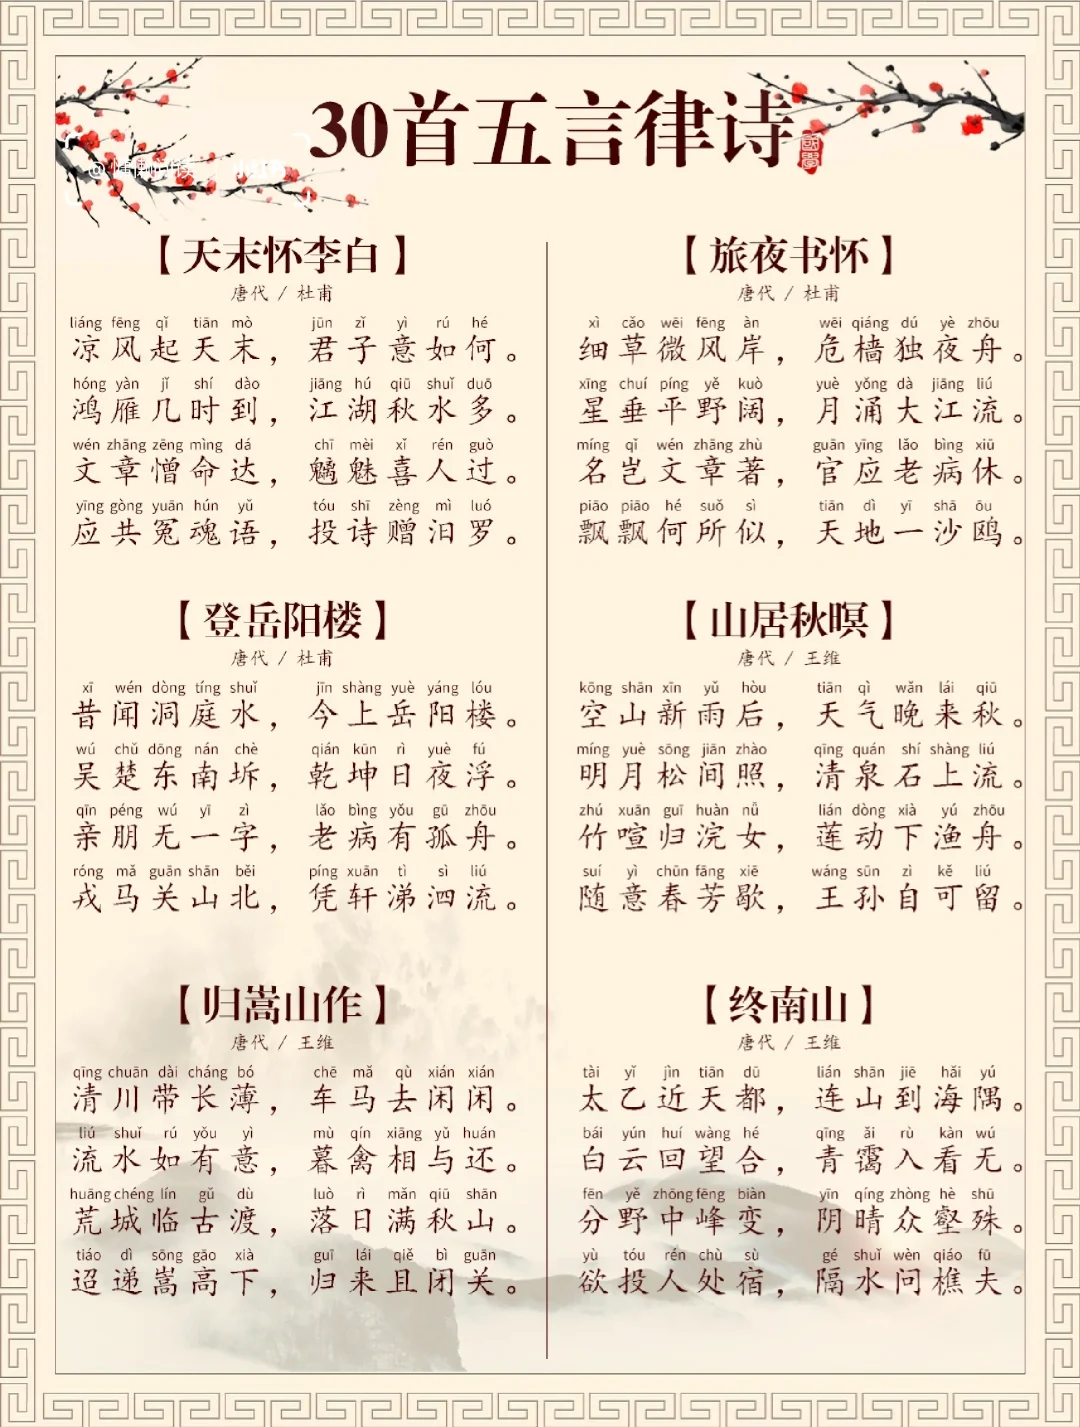 30首五言律诗
國學
小红书
【天末怀李白】
唐代 / 杜甫
liáng fēng qǐ tiān mò jūn zǐ yì rú hé
凉风起天末，君子意如何。
hóng yàn jǐ shí dào jiāng hú qiū shuǐ duō
鸿雁几时到，江湖秋水多。
wén zhāng zēng mìng dá chī mèi xǐ rén guò
文章憎命达，魑魅喜人过。
yīng gòng yuān hún yǔ tóu shī zèng mì luó
应共冤魂语，投诗赠汨罗。
【登岳阳楼】
唐代 / 杜甫
xī wén dòng tíng shuǐ jīn shàng yuè yáng lóu
昔闻洞庭水，今上岳阳楼。
wú chǔ dōng nán chè qián kūn rì yuè fú
吴楚东南坼，乾坤日夜浮。
qīn péng wú yī zì lǎo bìng yǒu gū zhōu
亲朋无一字，老病有孤舟。
róng mǎ guān shān běi píng xuān tì sì liú
戎马关山北，凭轩涕泗流。
【归嵩山作】
唐代 / 王维
qīng chuān dài cháng bó chē mǎ qù xián xián
清川带长薄，车马去闲闲。
liú shuǐ rú yǒu yì mù qín xiāng yǔ huán
流水如有意，暮禽相与还。
huāng chéng lín gǔ dù luò rì mǎn qiū shān
荒城临古渡，落日满秋山。
tiáo dì sōng gāo xià guī lái qiě bì guān
迢递嵩高下，归来且闭关。
【旅夜书怀】
唐代 / 杜甫
xì cǎo wēi fēng àn wēi qiáng dú yè zhōu
细草微风岸，危樯独夜舟。
xīng chuí píng yě kuò yuè yǒng dà jiāng liú
星垂平野阔，月涌大江流。
míng qǐ wén zhāng zhù guān yīng lǎo bìng xiū
名岂文章著，官应老病休。
piāo piāo hé suǒ sì tiān dì yī shā ōu
飘飘何所似，天地一沙鸥。
【山居秋暝】
唐代 / 王维
kōng shān xīn yǔ hòu tiān qì wǎn lái qiū
空山新雨后，天气晚来秋。
míng yuè sōng jiān zhào qīng quán shí shàng liú
明月松间照，清泉石上流。
zhú xuān guī huàn nǚ lián dòng xià yú zhōu
竹喧归浣女，莲动下渔舟。
suí yì chūn fāng xiē wáng sūn zì kě liú
随意春芳歇，王孙自可留。
【终南山】
唐代 / 王维
tài yǐ jìn tiān dū lián shān jiē hǎi yú
太乙近天都，连山到海隅。
bái yún huí wàng hé qīng ǎi rù kàn wú
白云回望合，青霭入看无。
fēn yě zhōng fēng biàn yīn qíng zhòng hè shū
分野中峰变，阴晴众壑殊。
yù tóu rén chù sù gé shuǐ wèn qiáo fū
欲投人处宿，隔水问樵夫。